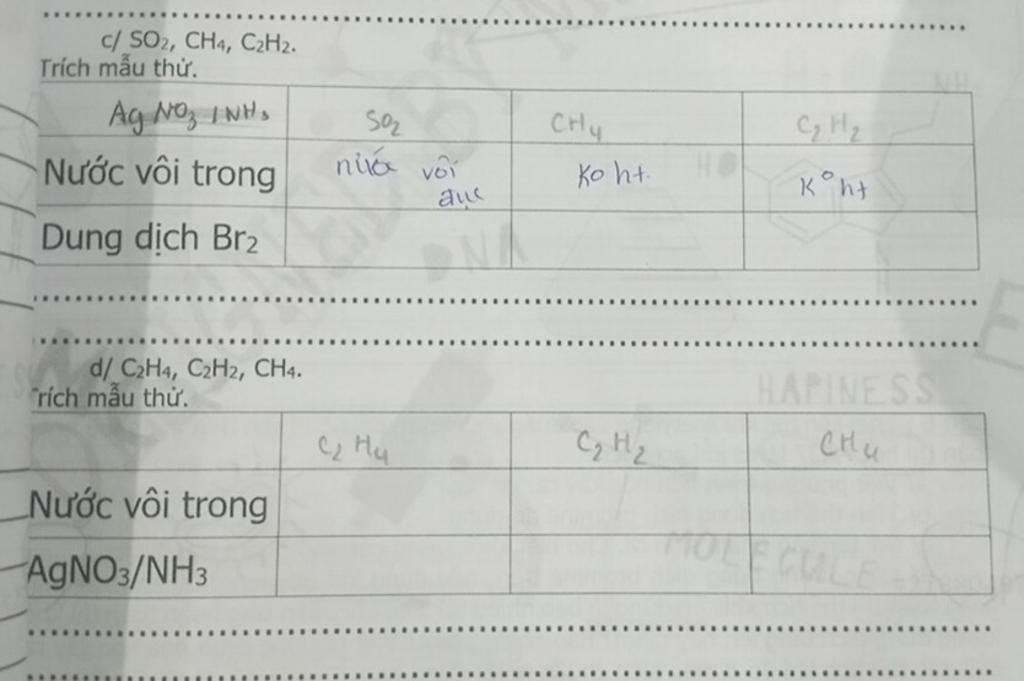 c/ SO₂, CH₄, C₂H₂.
Trích mẫu thử.
AgNO₃/NH₃ SO₂ CH₄ C₂H₂
Nước vôi trong nước vôi đục Ko ht. K° ht
Dung dịch Br₂
DNA
d/ C₂H₄, C₂H₂, CH₄.
rích mẫu thử.
HAPINESS
C₂H₄ C₂H₂ CH₄
Nước vôi trong
AgNO₃/NH₃
MOLECULE